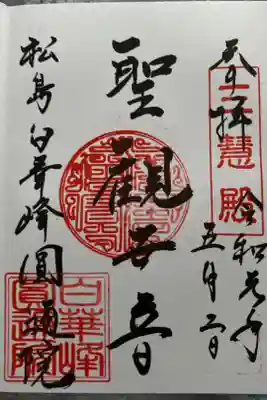 奉拝
三慧殿
令和元年
五月二日
聖觀世音
松島白華峰圓通院
白華峰
圓通院